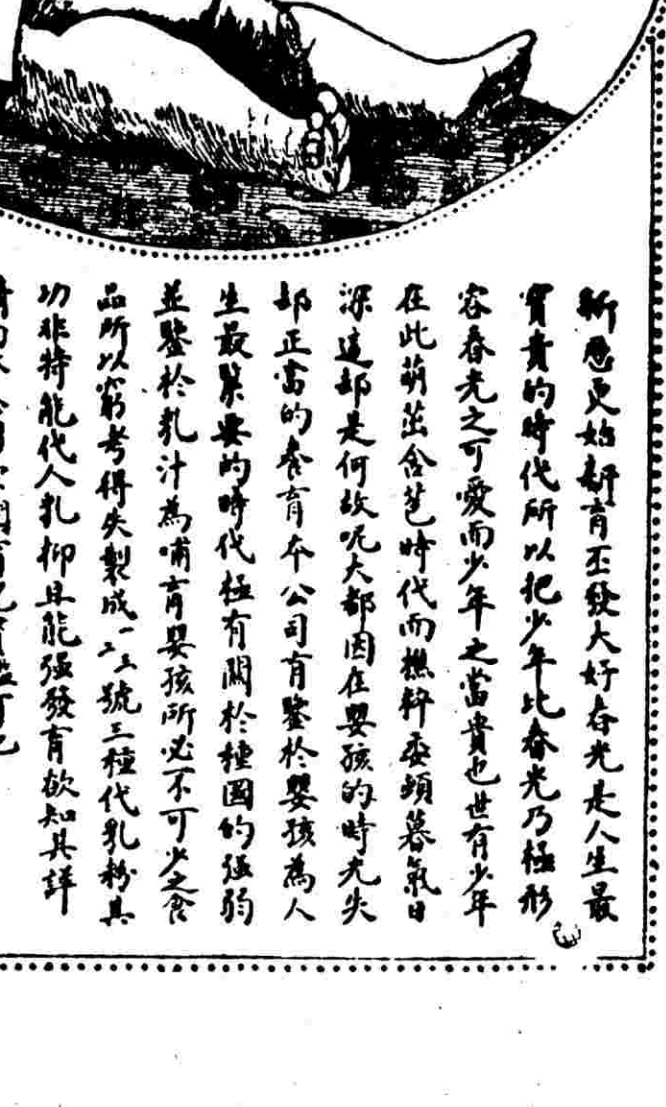 更始新育丕發大好春光是人生最
寶貴的時代所以把少年比春光乃極形
容春光之可愛而少年之當貴也世有少年
在此萌茁含苞時代而樵粹委頓暮氣日
深這部是何故呢大都因在嬰孩的時光失
却正當的養育本公司有鑒於嬰孩為人
生最緊要的時代極有關於種國的强弱
並鑒於乳汁為哺育嬰孩所必不可少之食
品所以窮考得失製成一二三號三種代乳粉其
功非特能代人乳抑且能强發育欲知其詳